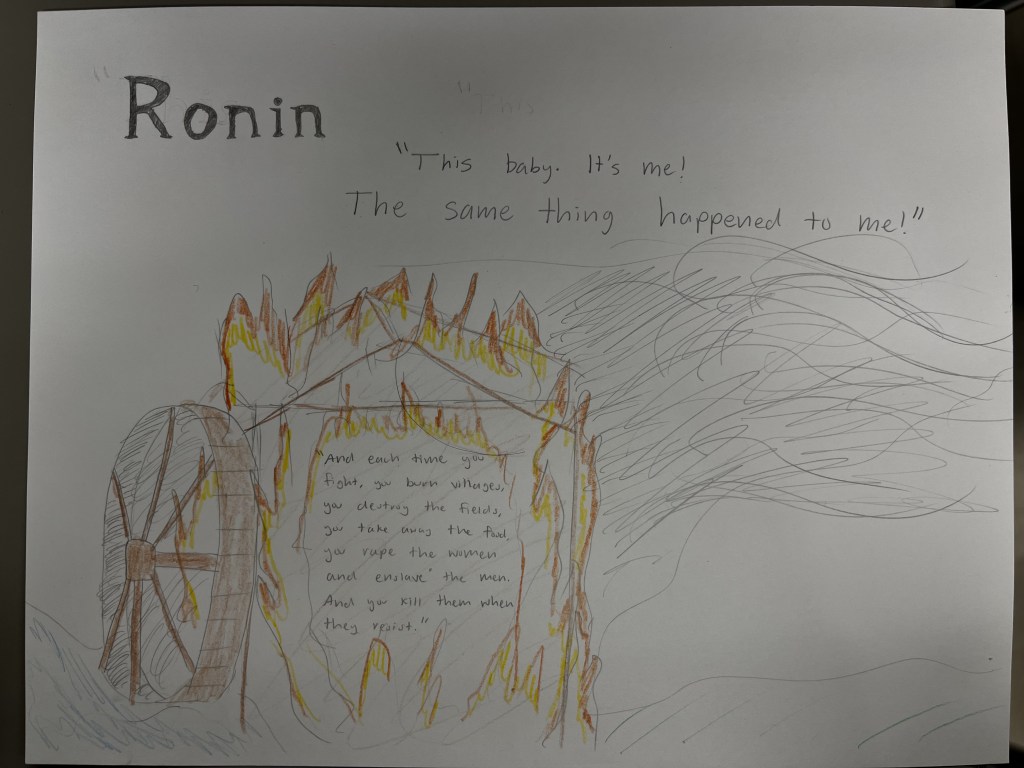 "Ronin
"This
"This baby. It's me!
The same thing happened to me!"
"And each time you
fight, you burn villages,
you destroy the fields,
you take away the food,
you rape the women
and enslave the men.
And you kill them when
they resist."